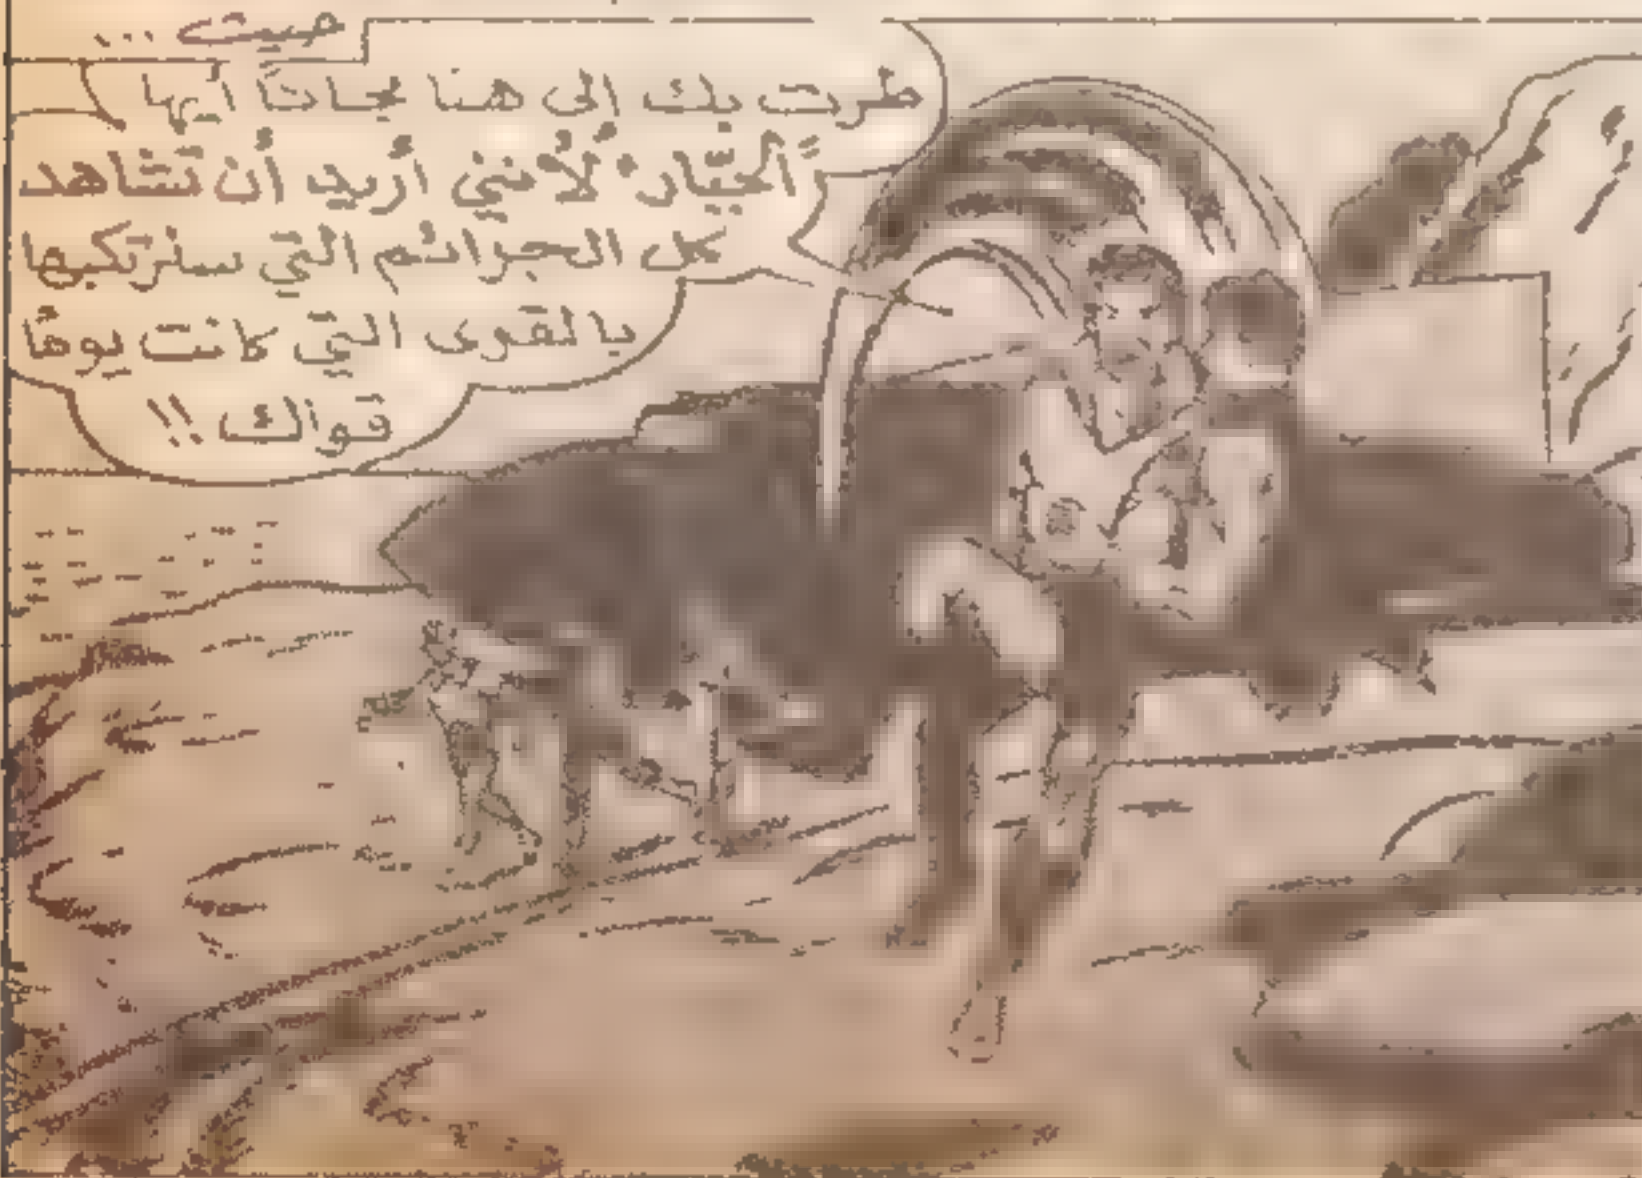 صيت ...
طرت بك إلى هنا مجانًا أيها
"الجبّار" لأنني أريد أن تشاهد
كل الجرائم التي سنرتكبها
بالقوى التي كانت يومًا
قواك !!